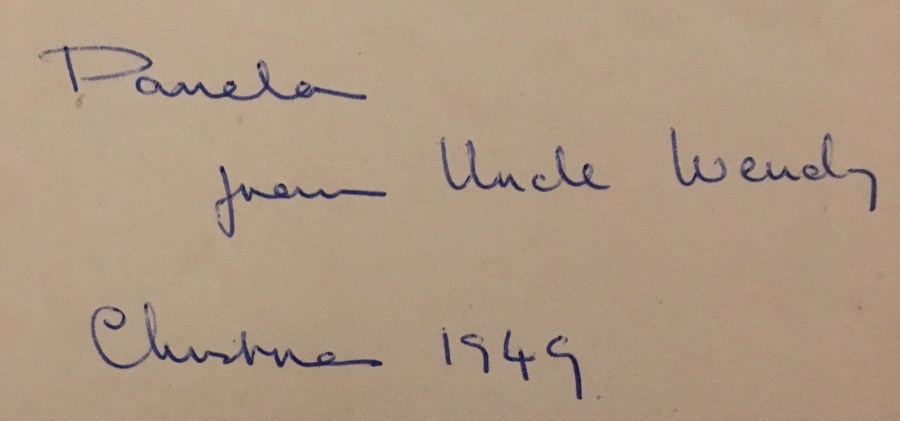 Pamela
from Uncle Wendy
Christmas 1949